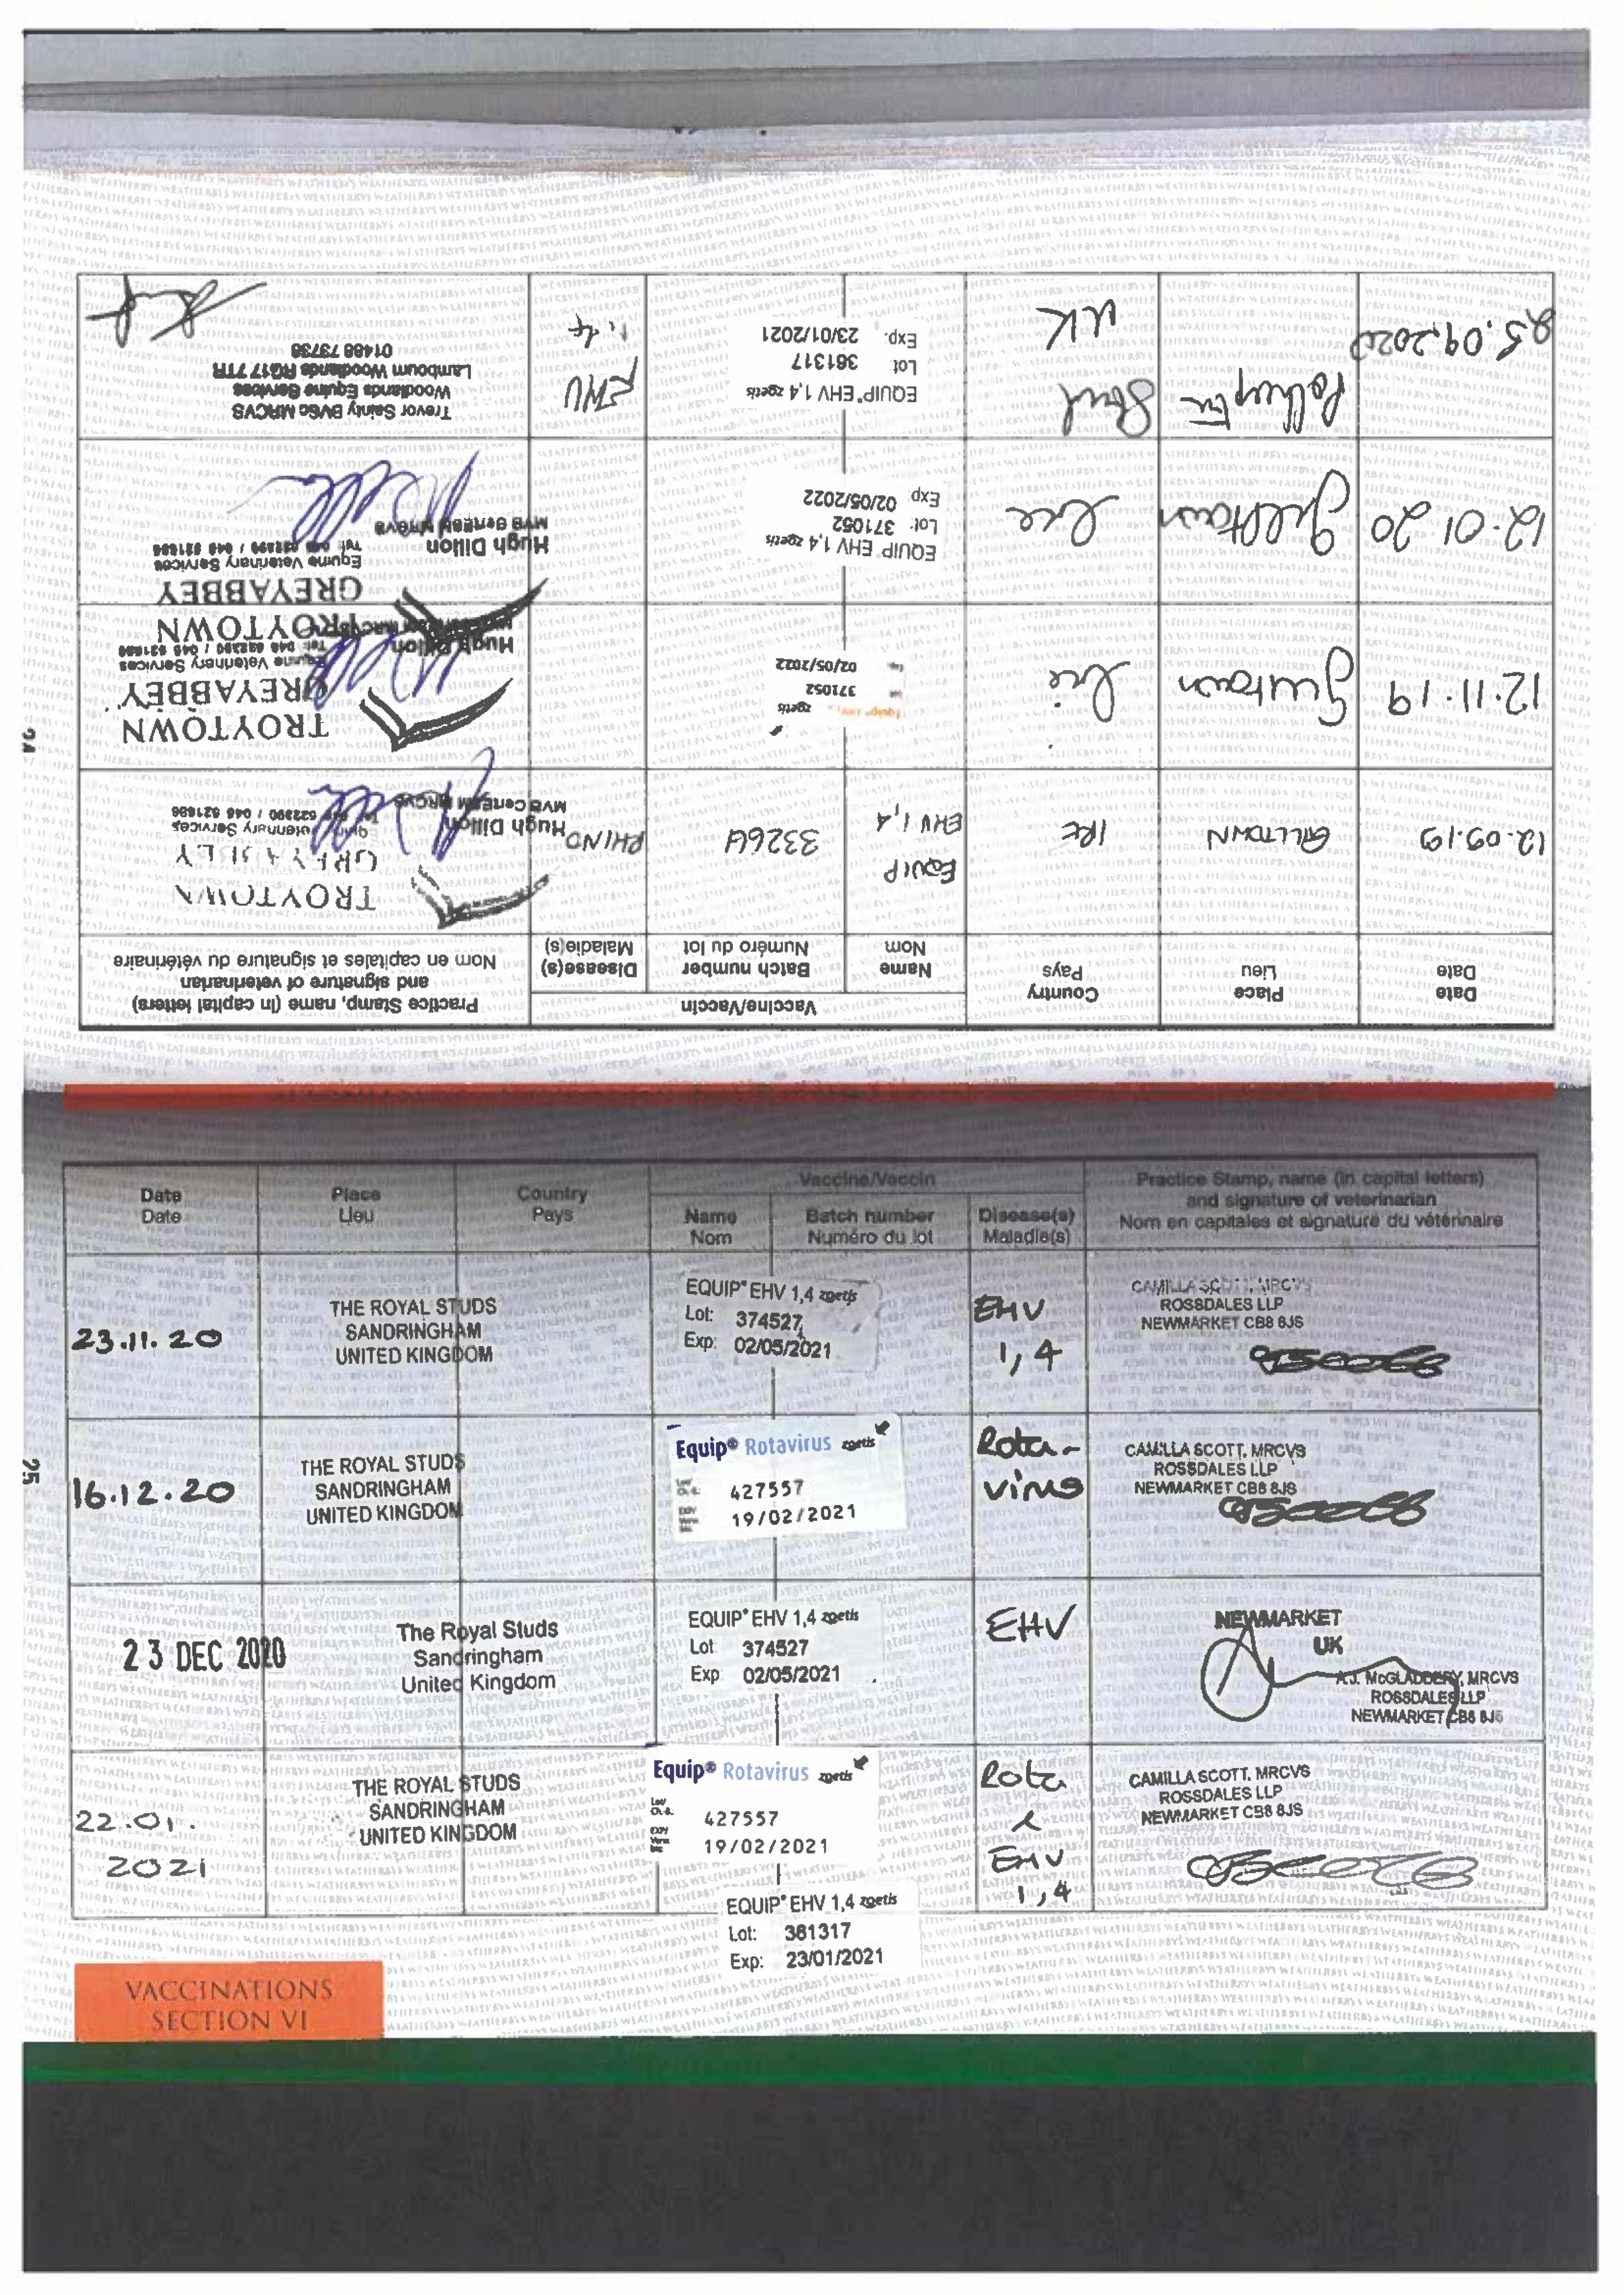 24
Date
Date
Place
Lieu
Country
Pays
Vaccine/Vaccin
Name
Nom
Batch number
Numéro du lot
Disease(s)
Maladie(s)
Practice Stamp, name (in capital letters)
and signature of veterinarian
Nom en capitales et signature du vétérinaire
12.09.19
GILLTOWN
IRE
EQUIP
EHV 1,4
RHINO
TROYTOWN
Hugh Dillon
MVB CertESM MRCVS
12.11.19
Gilltown
Ire
zoetis
371052
02/05/2022
TROYTOWN
GREYABBEY
Equine Veterinary Services
Hugh Dillon
12.01.20
Gilltown
Ire
EQUIP EHV 1,4 zoetis
Lot: 371052
Exp 02/05/2022
TROYTOWN
GREYABBEY
Equine Veterinary Services
Hugh Dillon
MVB CertESM MRCVS
25.09.2020
Stud
UK
EQUIP® EHV 1,4 zoetis
Lot 381317
Exp. 23/01/2021
1,4
Trevor Sainty BVSc MRCVS
Woodlands Equine Services
Lambourn Woodlands RG17 7TR
01488 73738
25
Date
Date
Place
Lieu
Country
Pays
Vaccine/Vaccin
Name
Nom
Batch number
Numéro du lot
Disease(s)
Maladie(s)
Practice Stamp, name (in capital letters)
and signature of veterinarian
Nom en capitales et signature du vétérinaire
23.11.20
THE ROYAL STUDS
SANDRINGHAM
UNITED KINGDOM
EQUIP® EHV 1,4 zoetis
Lot: 374527
Exp: 02/05/2021
EHV
1,4
CAMILLA SCOTT, MRCVS
ROSSDALES LLP
NEWMARKET CB8 8JS
16.12.20
THE ROYAL STUDS
SANDRINGHAM
UNITED KINGDOM
Equip® Rotavirus zoetis
427557
19/02/2021
Rota-
virus
CAMILLA SCOTT, MRCVS
ROSSDALES LLP
NEWMARKET CB8 8JS
23 DEC 2020
The Royal Studs
Sandringham
United Kingdom
EQUIP® EHV 1,4 zoetis
Lot 374527
Exp 02/05/2021
EHV
NEWMARKET
UK
A.J. McGLADDERY, MRCVS
ROSSDALES LLP
NEWMARKET CB8 8JS
22.01.
2021
THE ROYAL STUDS
SANDRINGHAM
UNITED KINGDOM
Equip® Rotavirus zoetis
427557
19/02/2021
EQUIP® EHV 1,4 zoetis
Lot: 381317
Exp: 23/01/2021
Rota
&
EHV
1,4
CAMILLA SCOTT, MRCVS
ROSSDALES LLP
NEWMARKET CB8 8JS
VACCINATIONS
SECTION VI